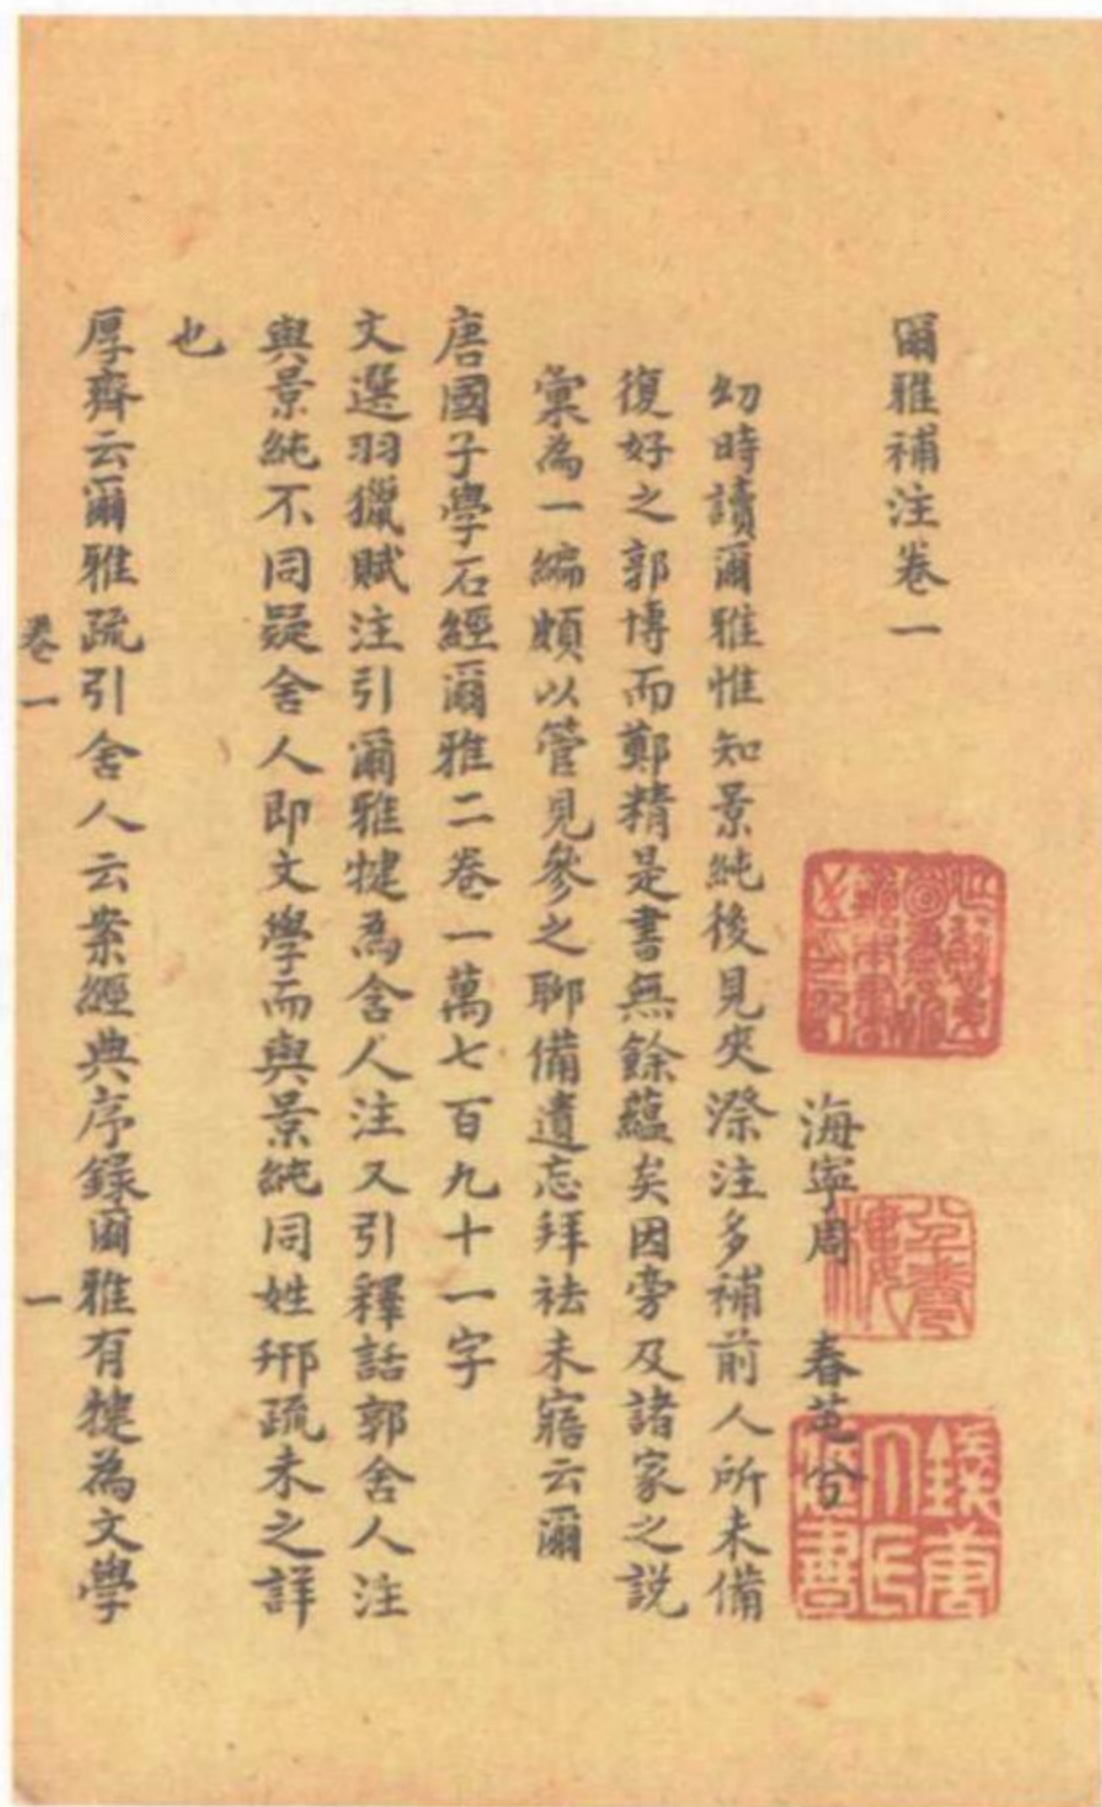 爾雅補注卷一
海寧周 春芚兮
幼時讀爾雅惟知景純後見夾漈注多補前人所未備
復好之郭博而鄭精是書無餘蘊矣因旁及諸家之説
彙為一編頗以管見參之聊備遺忘拜袪未寤云爾
唐國子學石經爾雅二卷一萬七百九十一字
文選羽獵賦注引爾雅犍為舍人注又引釋詁郭舍人注
與景純不同疑舍人即文學而與景純同姓邢疏未之詳
也
厚齊云爾雅疏引舍人云案經典序錄爾雅有犍為文學
卷一
一
八千卷樓
錢唐丁氏藏書